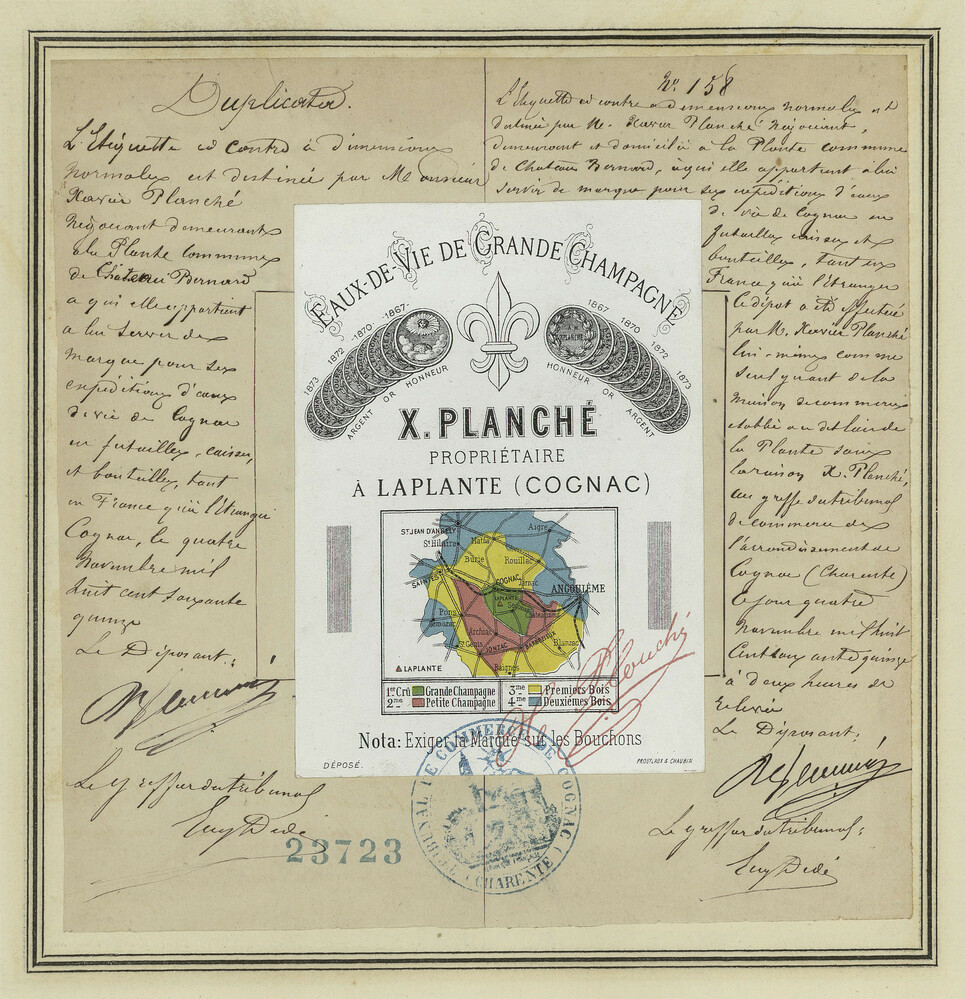 Duplicata.
L'Etiquette ci contre à dimensions
normales est destinée par Monsieur
Xavier Planché
Négociant demeurant
à la Plante commune
de Château Bernard
a qui elle appartient
a lui servir de
marque pour ses
expéditions d'eaux
de vie de Cognac
en futailles, caisses,
et bouteilles, tant
en France qu'à l'étranger
Cognac, le quatre
Novembre mil
huit cent soixante
quinze
Le Déposant:
Le greffier du tribunal
Eug Dedé
23723
No. 158
L'Etiquette ci contre a dimensions normales est
destinée par M. Xavier Planché Négociant,
demeurant et domicilié a la Plante commune
de Chateau Bernard, à qui elle appartient à lui
servir de marque pour ses expéditions d'eaux
de vie de Cognac en
futailles caisses et
bouteilles tant en
France qu'à l'étranger
Le dépot a été effectué
par M. Xavier Planché
lui-même comme
seul gérant de la
maison de commerce
établie au dit lieu de
la Plante sous
la raison X. Planché,
au greffe du tribunal
de commerce de
l'arrondissement de
Cognac (Charente)
Le jour quatre
Novembre mil huit
Cent soixante quinze
à deux heures de
relevée
Le Déposant:
Le greffier du tribunal:
Eug Dedé
EAUX-DE-VIE DE GRANDE CHAMPAGNE
1873 1872 -1870 -1867-
ARGENT OR HONNEUR
1867 1870 1872 1873
HONNEUR OR ARGENT
X. PLANCHÉ
PROPRIÉTAIRE
À LAPLANTE (COGNAC)
ST JEAN D'ANGELY
Aigre
St Hilaire
Matha
Burie
Rouillac
SAINTES
COGNAC
Jarnac
ANGOULÊME
LAPLANTE
Segonzac
Châteauneuf
Pons
Gemozac
Archiac
BARBEZIEUX
Blanzac
St Genis
JONZAC
Baignes
LAPLANTE
1er Crû Grande Champagne
2me Petite Champagne
3me Premiers Bois
4me Deuxièmes Bois
Nota: Exiger la Marque sur les Bouchons
DÉPOSÉ.
PROUTEAUX & CHAUBIN
X. Planché
TRIBUNAL DE COMMERCE DE COGNAC (CHARENTE)